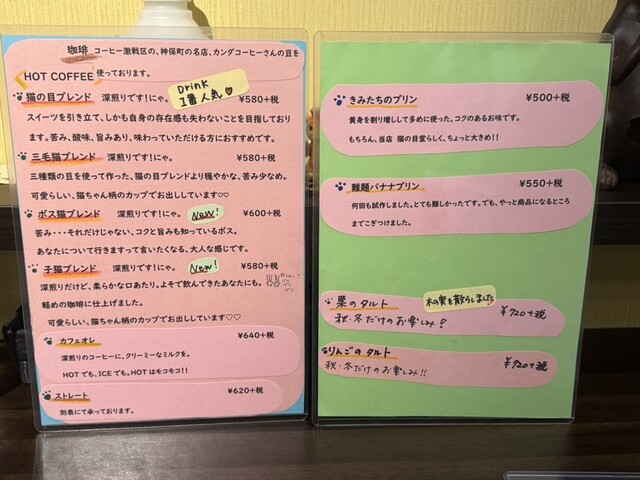 珈琲 コーヒー激戦区の、神保町の名店、カンダコーヒーさんの豆を
HOT COFFEE 使っております。
Drink
1番人気♡
猫の目ブレンド 深煎りです!にゃ。 ¥580+税
スイーツを引き立て、しかも自身の存在感も失わないことを目指しており
ます。苦み、酸味、旨みあり、味わっていただける方におすすめです。
三毛猫ブレンド 深煎りです!にゃ。 ¥580+税
三種類の豆を使って作った、猫の目ブレンドより穏やかな、苦み少なめ。
可愛らしい、猫ちゃん柄のカップでお出ししています♡♡
ボス猫ブレンド 深煎りです!にゃ。 New! ¥600+税
苦み・・・それだけじゃない、コクと旨みも知っているボス。
あなたについて行きますって言いたくなる、大人な感じです。
子猫ブレンド 深煎りです!にゃ。 New! ¥580+税
深煎りだけど、柔らかな口あたり。よそで飲んできたあなたにも。
軽めの珈琲に仕上げました。
可愛らしい、猫ちゃん柄のカップでお出ししています♡♡
カフェオレ ¥640+税
深煎りのコーヒーに、クリーミーなミルクを。
HOT でも、ICE でも。HOT はモコモコ!!
ストレート ¥620+税
別表にて承っております。
きみたちのプリン ¥500+税
黄身を割り増しして多めに使った、コクのあるお味です。
もちろん、当店 猫の目堂らしく、ちょっと大きめ!!
難題バナナプリン ¥550+税
何回も試作しました。とても難しかったです。でも、やっと商品になるところ
までこぎつけました。
栗のタルト 木の実を散らしました ¥720+税
秋・冬だけのお楽しみ?
りんごのタルト ¥720+税
秋・冬だけのお楽しみ!!